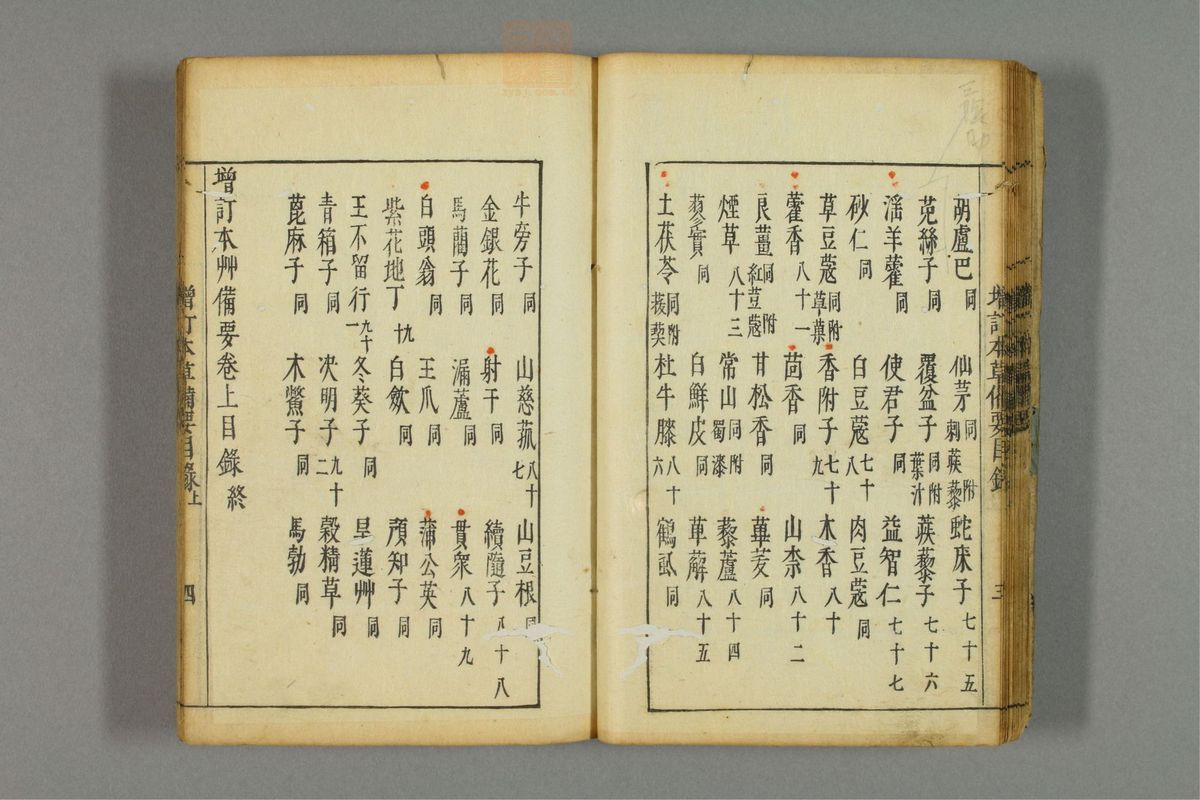 胡盧巴同 仙茅同附刺蒺藜 蛇床子七十五
兎絲子同 覆盆子同附葉汁 蒺藜子七十六
淫羊藿同 使君子同 益智仁七十七
砂仁同 白豆蔻七十八 肉豆蔻同
草豆蔻同附草菓 香附子七十九 木香八十
藿香八十一 茴香同 山柰八十二
良薑同附紅荳蔻 甘松香同 蓽茇同
煙草八十三 常山同附蜀漆 藜蘆八十四
蔾實同 白鮮皮同 萆薢八十五
土茯苓同附菝葜 杜牛膝八十六 鶴蝨同
牛旁子同 山慈菰八十七 山豆根同
金銀花同 射干同 續隨子八十八
馬藺子同 漏蘆同 貫衆八十九
白頭翁同 王瓜同 蒲公英同
紫花地丁九十 白歛同 預知子同
王不留行九十一 冬葵子同 旱蓮艸同
青箱子同 决明子九十二 穀精草同
蓖麻子同 木鱉子同 馬勃同
增訂本艸備要卷上目錄終
增訂本草備要目錄
三
增訂本草備要目錄上
四